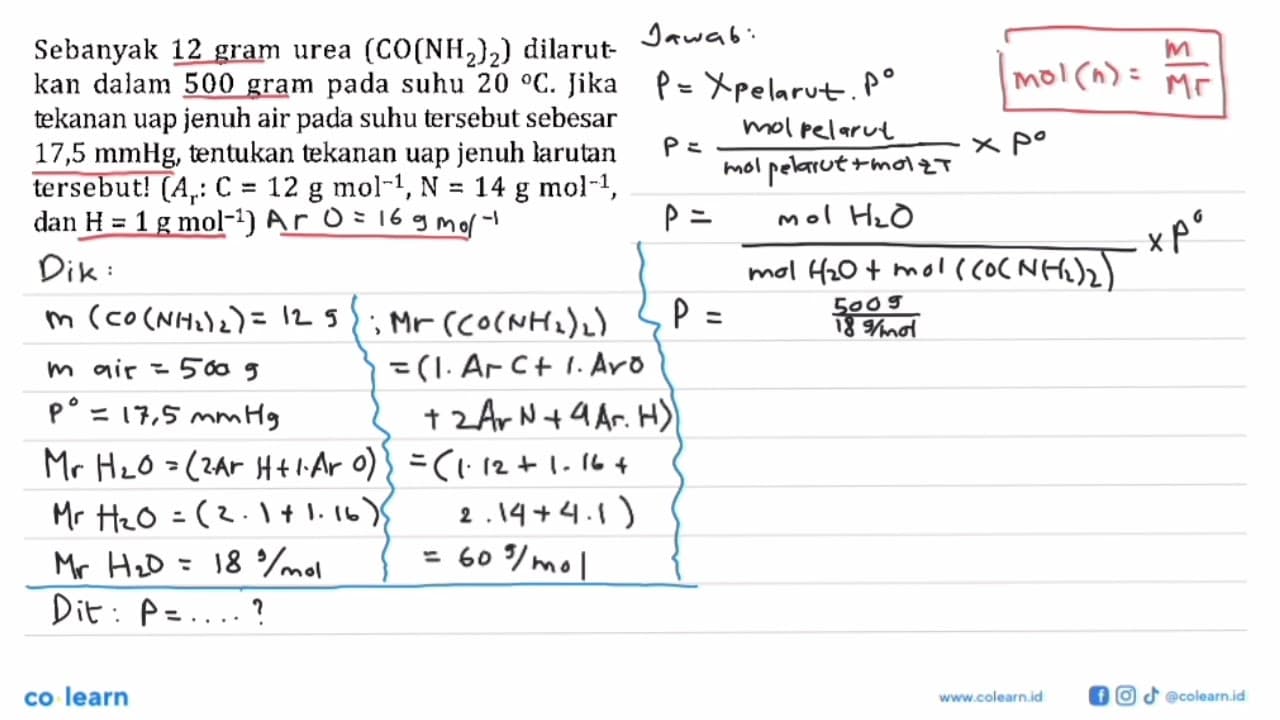 Sebanyak 12 gram urea (CO(NH₂)₂) dilarut-
kan dalam 500 gram pada suhu 20 °C. Jika
tekanan uap jenuh air pada suhu tersebut sebesar
17,5 mmHg, tentukan tekanan uap jenuh larutan
tersebut! (Aᵣ: C = 12 g mol⁻¹, N = 14 g mol⁻¹,
dan H = 1 g mol⁻¹) Ar O = 16 g mol⁻¹
Dik :
m (CO(NH₂)₂) = 12 g
m air = 500 g
P° = 17,5 mmHg
Mr H₂O = (2.Ar H + 1.Ar O)
Mr H₂O = (2 . 1 + 1. 16)
Mr H₂O = 18 g/mol
; Mr (CO(NH₂)₂)
= (1. Ar C + 1. Ar O
+ 2 Ar N + 4 Ar. H)
= (1. 12 + 1. 16 +
2 . 14 + 4 . 1 )
= 60 g/mol
Dit : P = .... ?
Jawab :
P = Xpelarut . P°
P = mol pelarut / mol pelarut + mol ZT × P°
P = mol H₂O / mol H₂O + mol ((CO(NH₂)₂) × P°
P = 500 g / 18 g/mol
mol (n) = m / Mr
co learn
www.colearn.id
@colearn.id